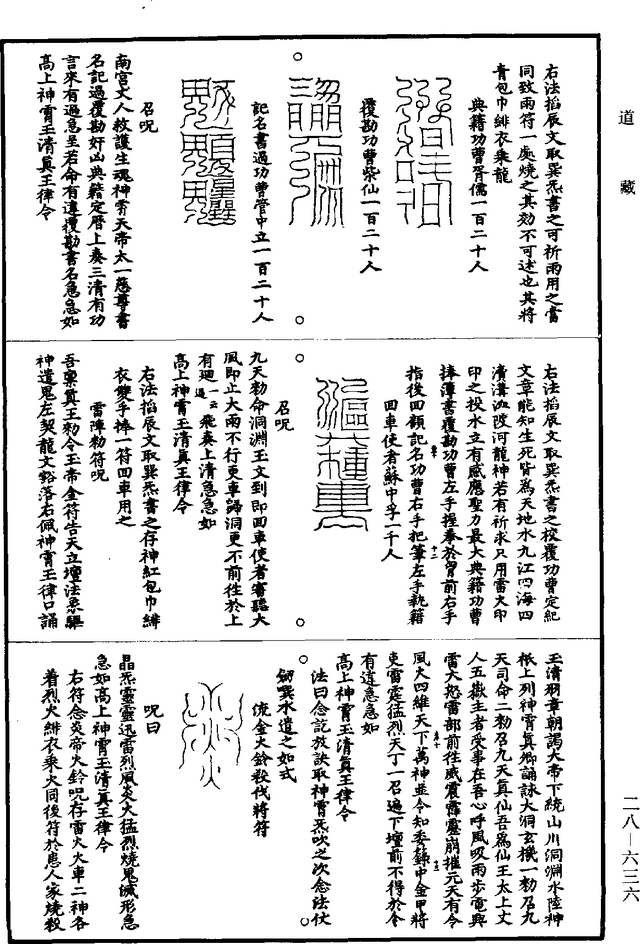 道藏
右法掐辰文取巽炁書之可祈雨用之當
同致雨符一處燒之其効不可述也其將
青包巾緋衣乘龍
典籍功曹胥儒一百二十人
覆勘功曹柴仙一百二十人
記名書過功曹管中立一百二十人
召呪
南宮丈人救護生魂神霄天帝太一慈尊書
名記過覆勘奸凶典籍定曆上奏三清有功
言來有過急呈若命有違覆勘書名急急如
高上神霄玉清真王律令
右法掐辰文取巽炁書之校覆功曹定紀
文章能知生死皆為天地水九江四海四
瀆溝洫陂河龍神若有祈求只用雷火印
印之投水立有感應聖力最大典籍功曹
捧簿書覆勘功曹左手握拳於胷前右手
指後回顧記名功曹右手把筆左手執籍
回車使者蘇中孚一千人
召呪
九天勑命洞淵玉文到即回車使者審聽大
風即止大雨不行更車歸洞更不前往於上
有迴一云違飛奏上清急急如
高上神霄玉清真王律令
右法掐辰文取巽炁書之存神紅包巾緋
衣雙手捧一符回車用之
雷陣勑符呪
吾禀真王勑令玉帝金符告天立壇法急驅
神遣鬼左契龍文谿落右佩神霄玉律口誦
玉清羽章朝謁大帝下統山川洞淵水陸神
祇上列神霄真卿誦詠大洞玄機一勑召九
天司命二勑召九天真仙吾為仙王太上丈
人五嶽主者受事在吾心呼風吸雨步電興
雷大怒雷部前往威震霹靂崩摧元天有令
風火四維天下萬神並令知委蘇中金甲將
吏雷霆猛烈天丁一召遍下壇前不得於令
有違急急如
高上神霄玉清真王律令
法曰念訖放訣取神霄炁吹之次念法仗
劒噀水遣之如式
流金火鈴殺伐將符
呪曰
晶炁靈靈迅雷烈風炎火猛烈燒鬼滅形急
急如高上神霄玉清真王律令
右符念炎帝火鈴呪存雷火火車二神各
着烈火緋衣乘火同後符於患人家燒殺
二八—六三六